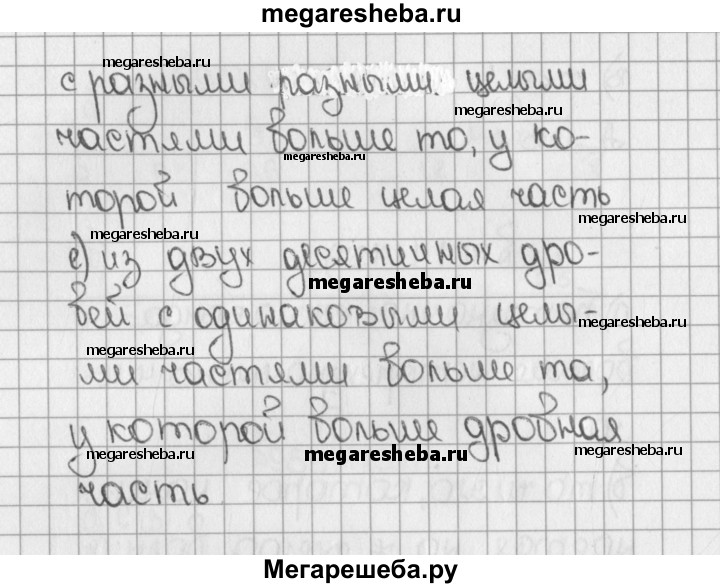 megaresheba.ru
megaresheba.ru
с разными разными целыми
megaresheba.ru
частями больше та, у ко-
megaresheba.ru
торой больше целая часть
megaresheba.ru
megaresheba.ru
е) из двух десятичных дро-
megaresheba.ru
бей с одинаковыми целы-
megaresheba.ru
megaresheba.ru
ми частями больше та,
у которой больше дробная
megaresheba.ru
megaresheba.ru
megaresheba.ru
часть.
Мегарешеба.ру